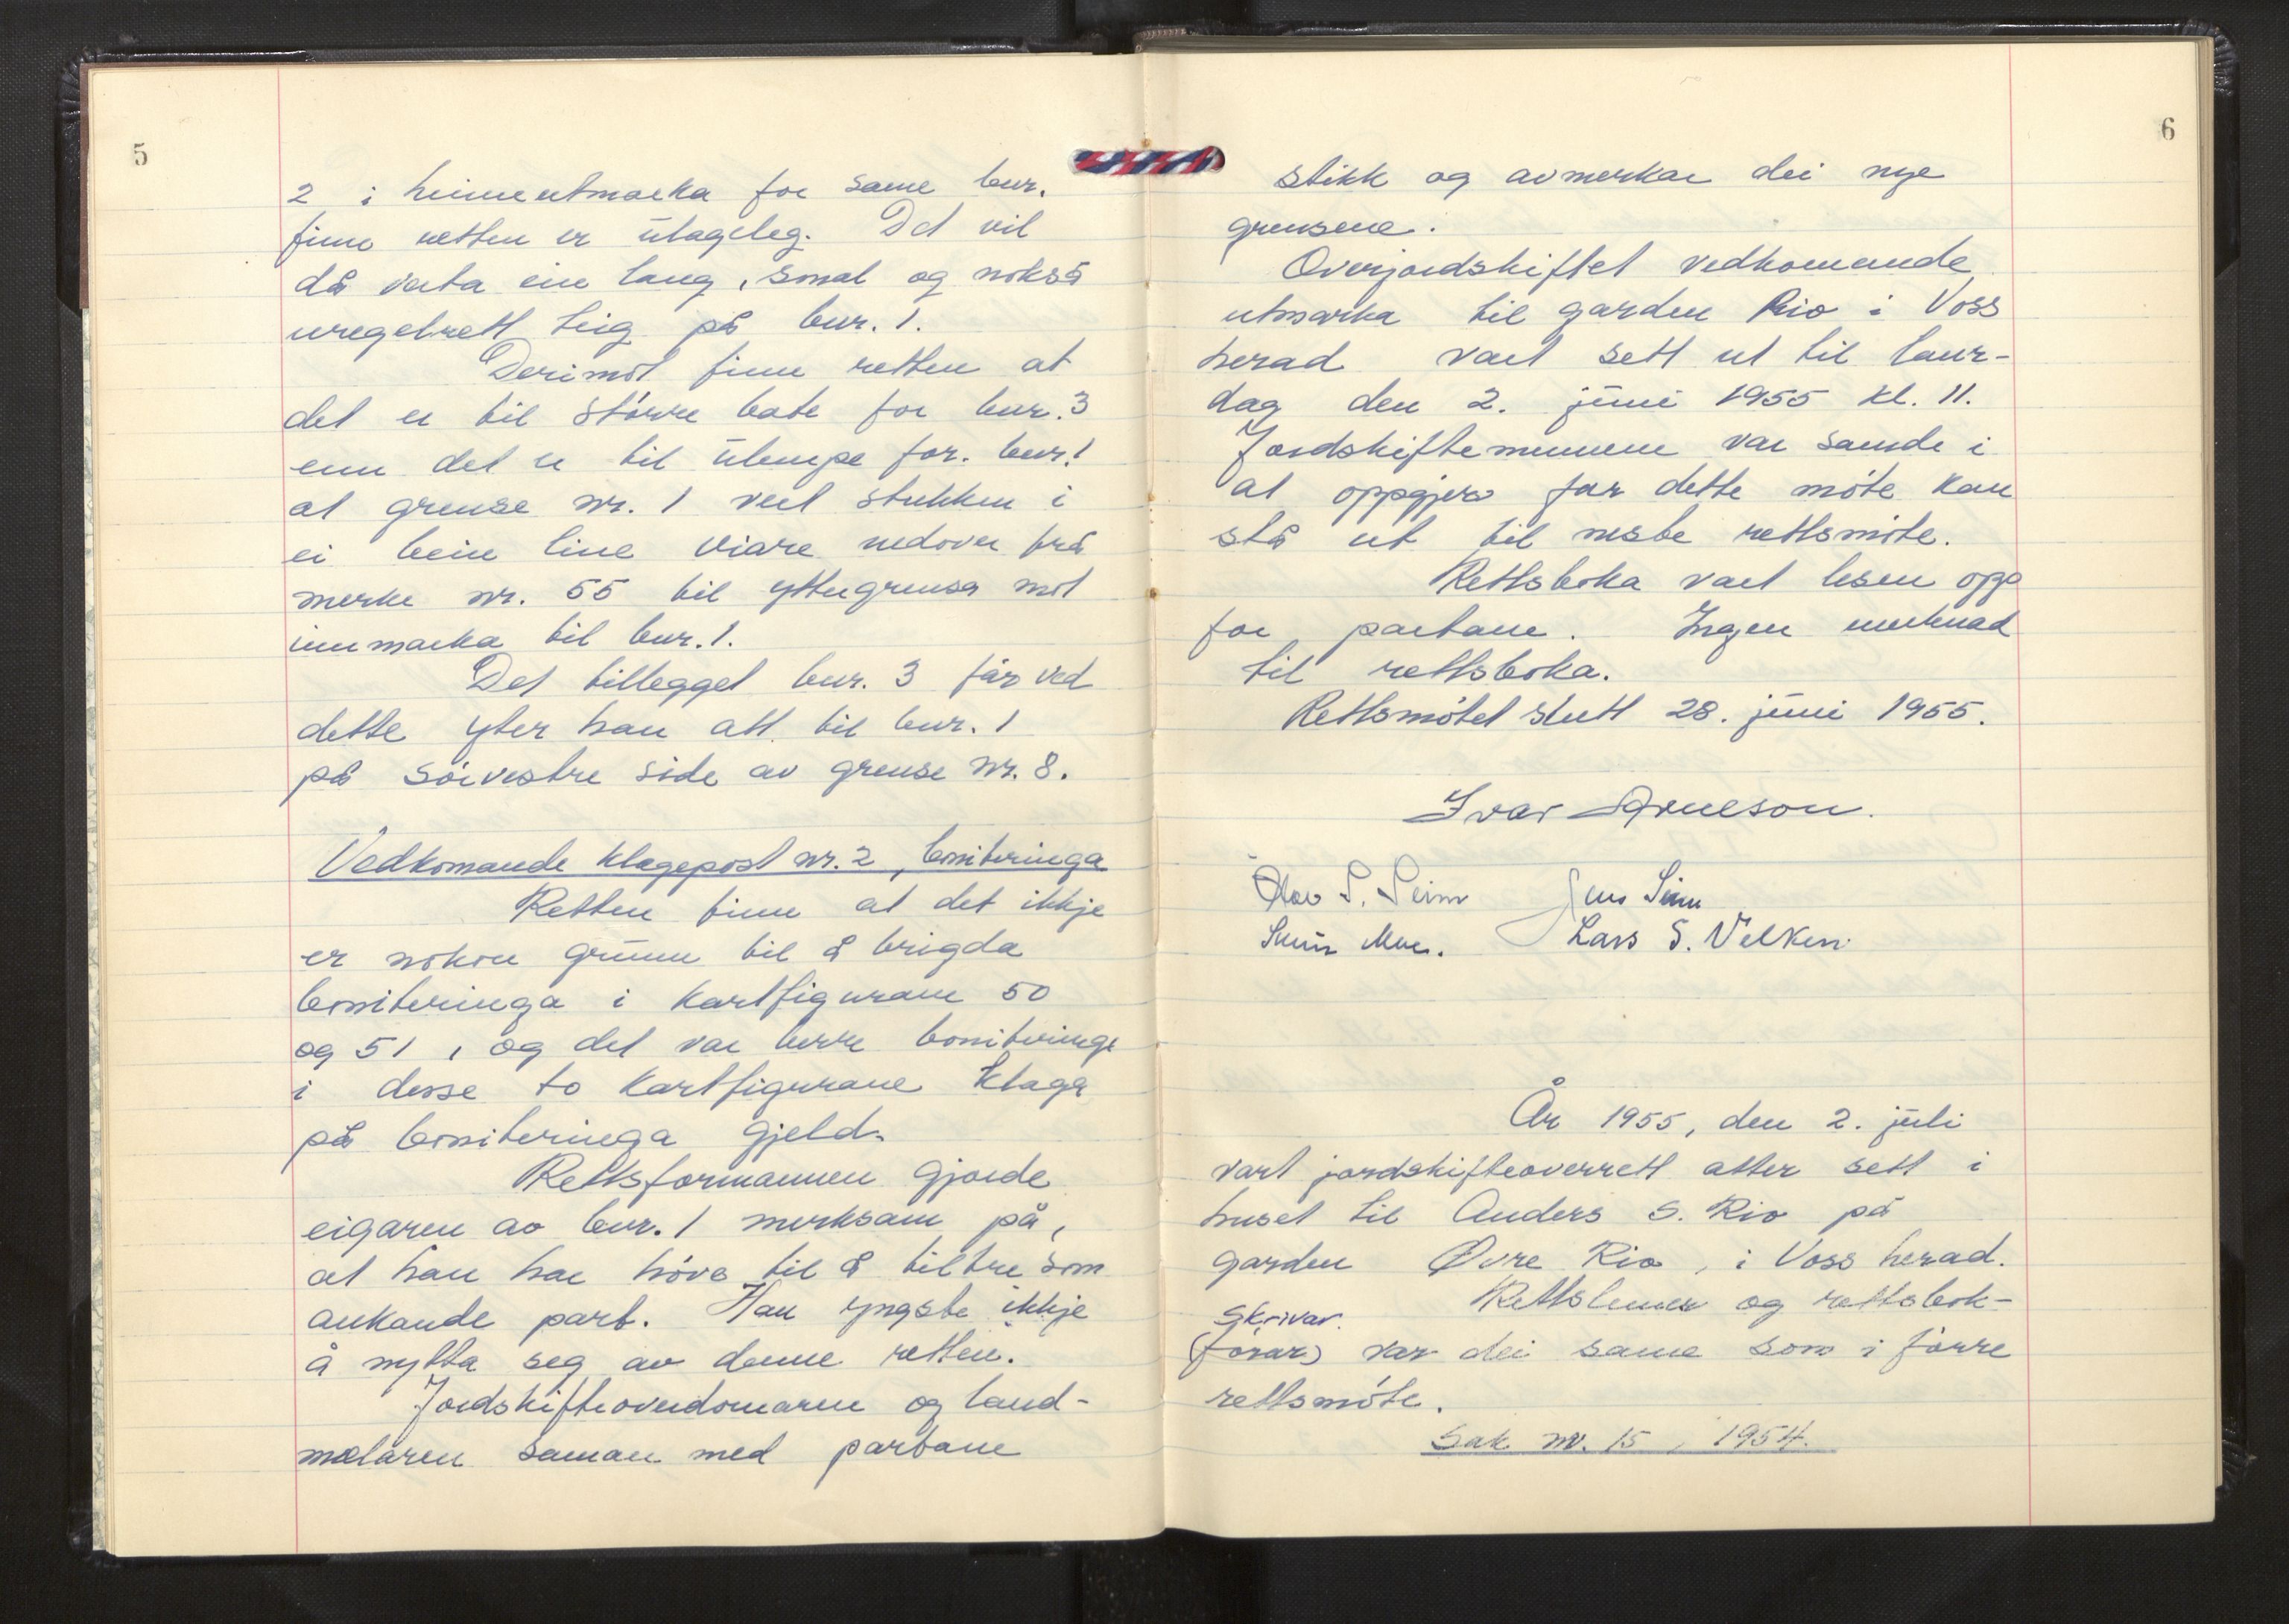 5
2 i heimeutmarka for same bnr.
finn retten er ulageleg. Det vil
då verta ein lang, smal og nokså
uregelrett teig på bnr. 1.
Derimot finn retten at
det er til større bate for bnr. 3
enn det er til ulempe for bnr. 1
at grense nr. 1 vert stukken i
ei bein line viare nedover frå
merke nr. 55 til yttergrensa mot
innmarka til bnr. 1.
Det tillegget bnr. 3 får ved
dette yter han att til bnr. 1
på sørvestre side av grense nr. 8.
Vedkomande klagepost nr. 2, boniteringa
Retten finn at det ikkje
er nokon grunn til å brigda
boniteringa i kartfigurane 50
og 51, og det var berre boniteringa
i desse to kartfigurane klaga
på boniteringa gjeld.
Rettsformannen gjorde
eigaren av bnr. 1 merksam på,
at han har høve til å tiltre som
ankande part. Han yngste ikkje
å nytta seg av denne retten.
Jordskifteoverdomaren og land-
mælaren saman med partane
6
stikk og avmerkar dei nye
grensene.
Overjordskiftet vedkomande
utmarka til garden Rio i Voss
herad vart sett ut til laur-
dag den 2. juni 1955 kl. 11.
Jordskiftemennene var samde i
at oppgjerd for dette møte kan
stå ut til neste rettsmøte.
Rettsboka vart lesen opp
for partane. Ingen merknad
til rettsboka.
Rettsmøtet slutt 28. juni 1955.
Ivar Arneson.
Olav S. Seim Jens Seim
Moe. Lars S. Velken
År 1955, den 2. juli
vart jordskifteoverrett atter sett i
huset til Anders S. Rio på
garden Øvre Rio, i Voss herad.
Rettslemer og rettsbok-
skrivar.
(førar) var dei same som i førre
rettsmøte.
Sak nr. 15, 1954.